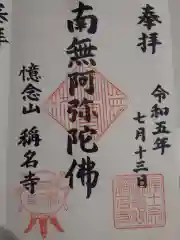 奉拝
令和五年
七月十三日
南無阿弥陀佛
憶念山 稱名寺